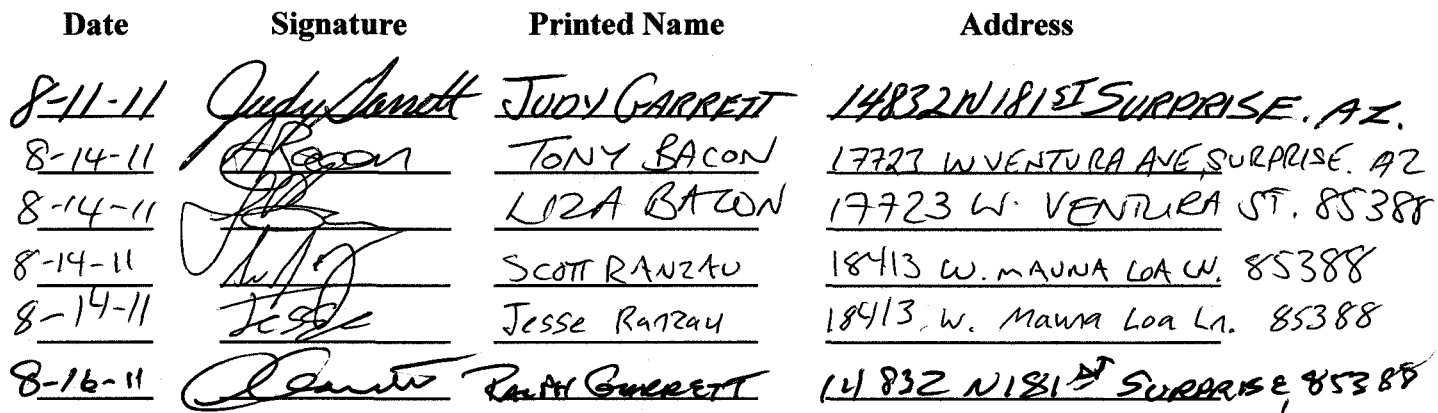 Date Signature Printed Name Address
8-11-11 Judy Garrett JUDY GARRETT 14832 N 181ST SURPRISE. AZ.
8-14-11 TONY BACON 17723 W VENTURA AVE, SURPRISE. AZ
8-14-11 LIZA BACON 17723 W. VENTURA ST. 85388
8-14-11 SCOTT RANZAU 18413 W. MAUNA LOA LN. 85388
8-14-11 Jesse Jesse Ranzau 18413 W. Mauna Loa Ln. 85388
8-16-11 RALPH GARRETT 14832 N 181ST SURPRISE, 85388